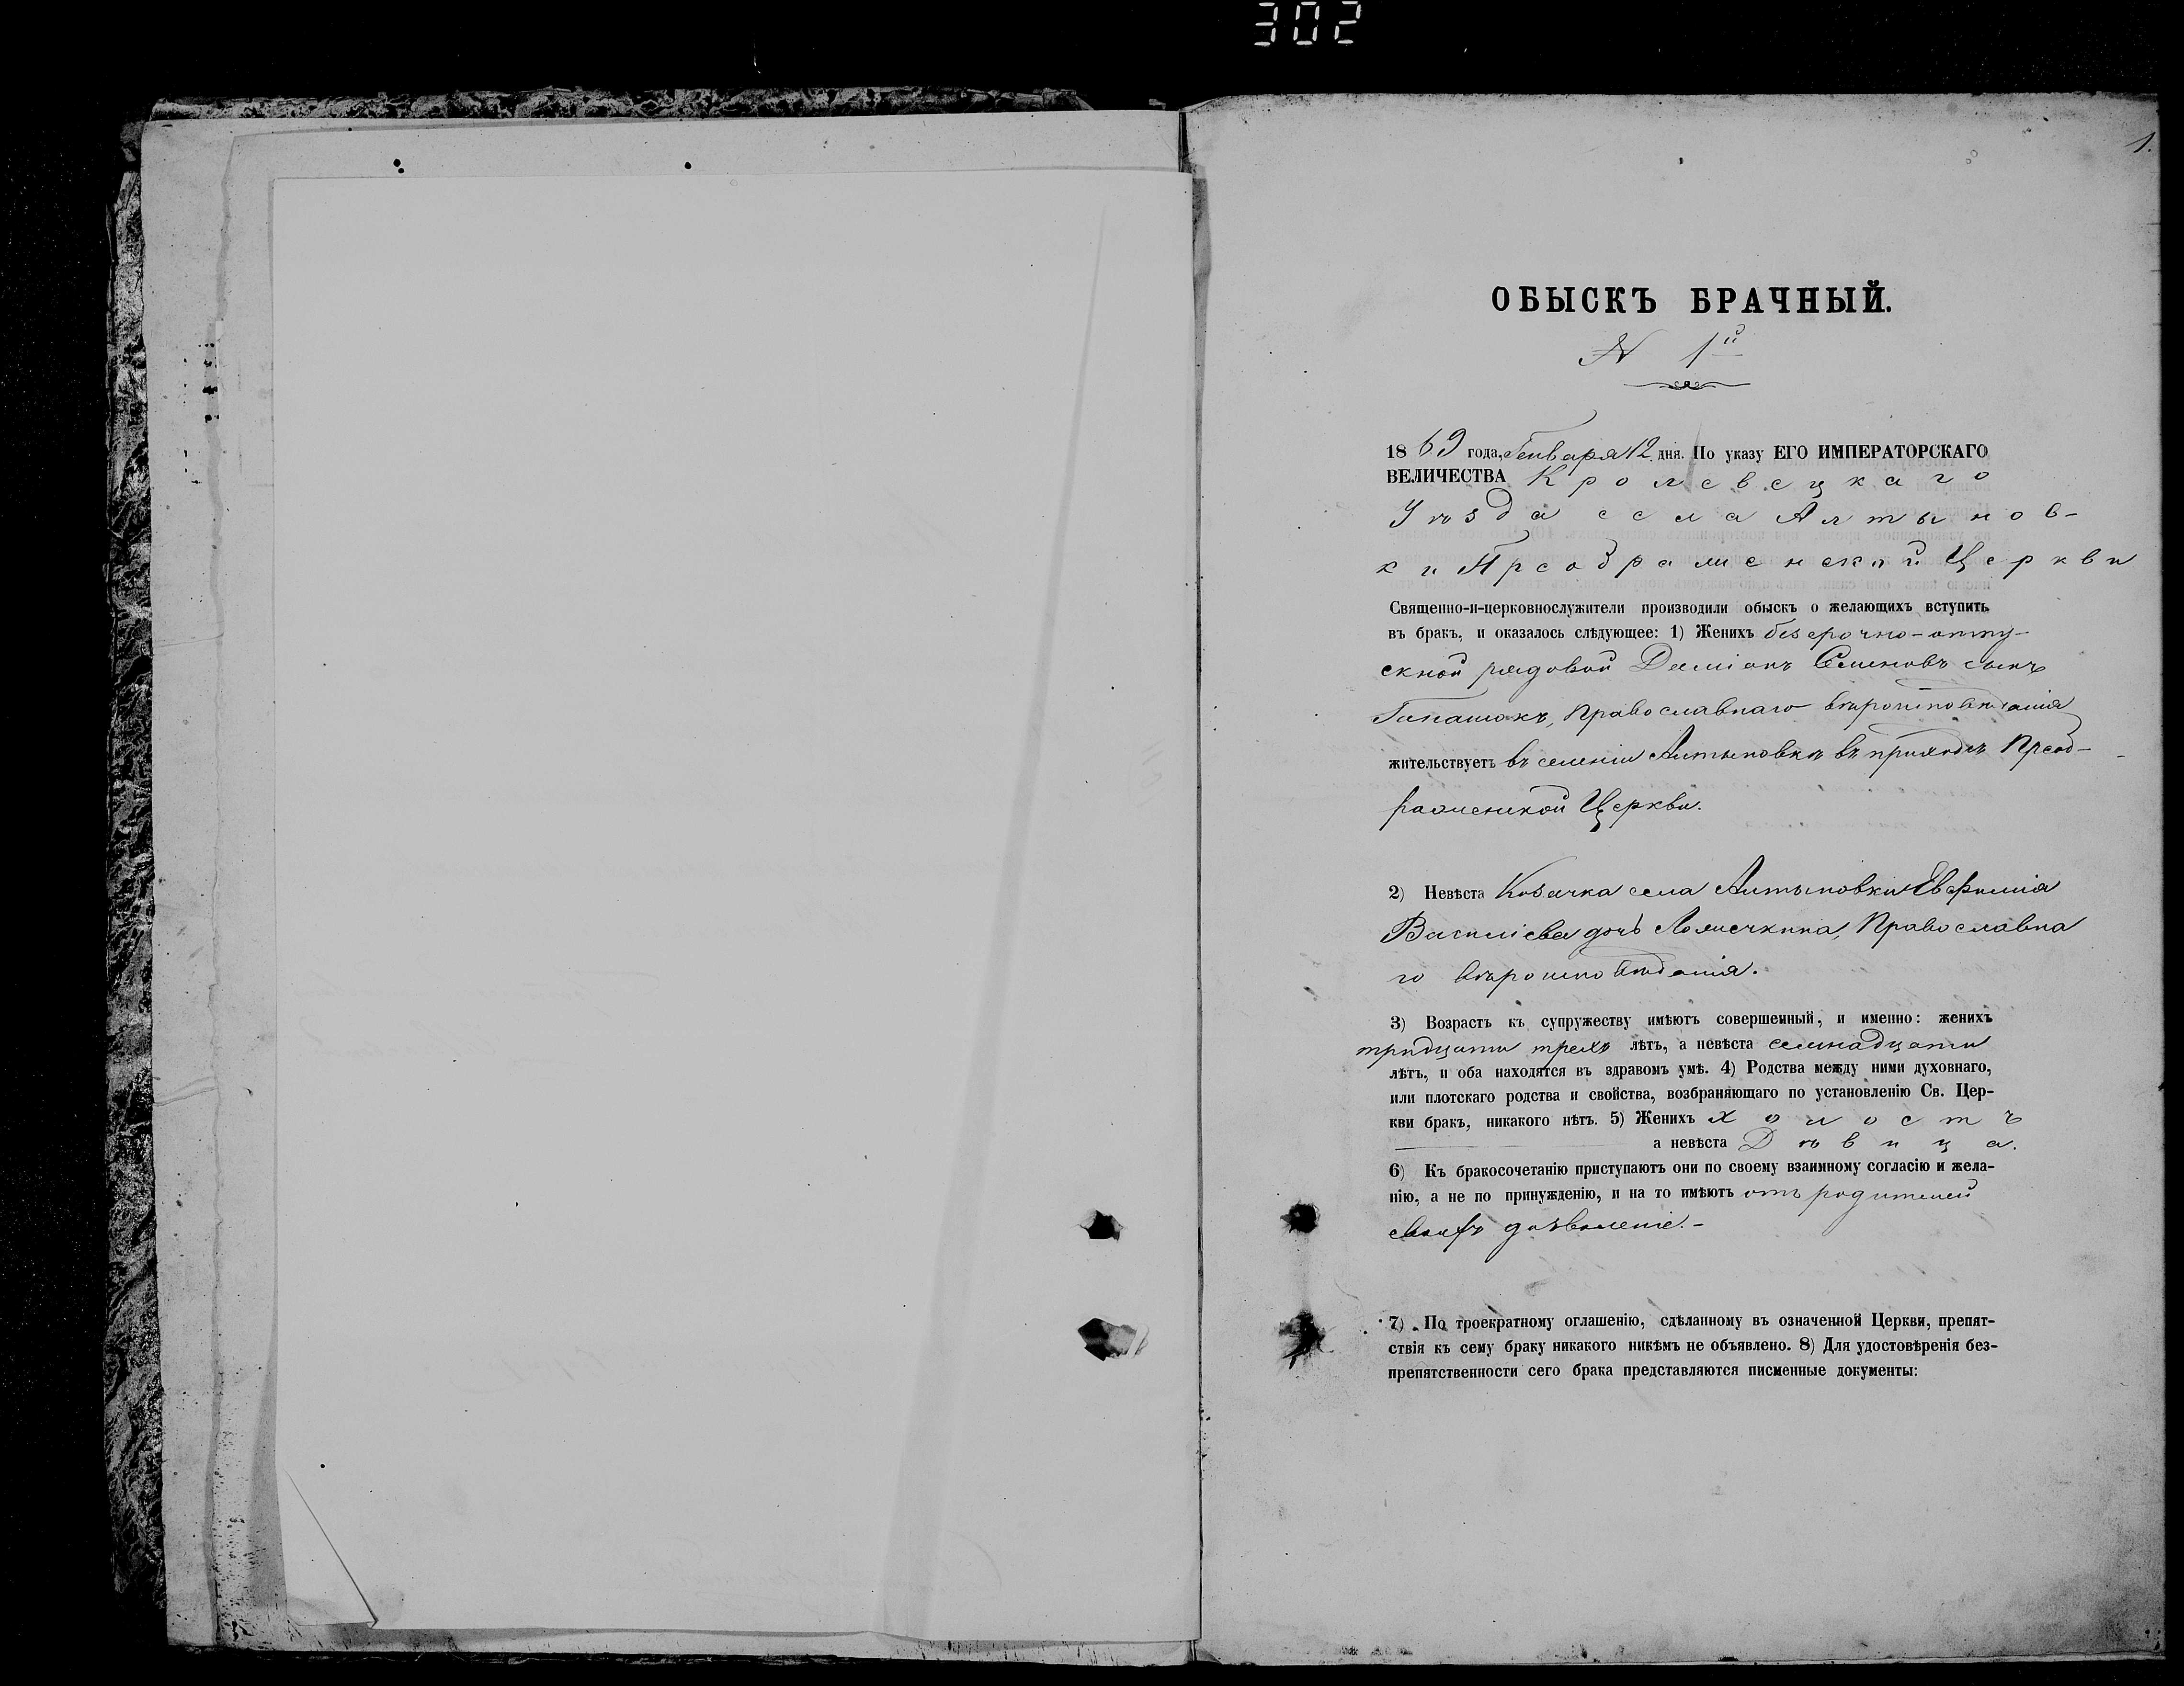 302
1.
ОБЫСКЪ БРАЧНЫЙ.
N 1й
1869 года, Генваря 12 дня. По указу ЕГО ИМПЕРАТОРСКАГО
ВЕЛИЧЕСТВА Кролевецкаго
Уѣзда села Алтынов-
ки Преображенской Церкви
Священно-и-церковнослужители производили обыскъ о желающихъ вступить
въ бракъ, и оказалось слѣдующее: 1) Женихъ безсрочно-отпу-
скной рядовой Даміанъ Семеновъ сынъ
Православнаго вѣроисповѣданія
жительствуетъ въ селеніи Алтыновкѣ въ приходѣ Преоб-
раженской Церкви.
2) Невѣста Козачка села Алтыновки Евфимія
Василіева дочь Ложечкина, Православна
го вѣроисповѣданія.
3) Возрастъ къ супружеству имѣютъ совершенный, и именно: женихъ
тридцати трехъ лѣтъ, а невѣста семнадцати
лѣтъ, и оба находятся въ здравомъ умѣ. 4) Родства между ними духовнаго,
или плотскаго родства и свойства, возбраняющаго по установленію Св. Цер-
кви бракъ, никакого нѣтъ. 5) Женихъ холостъ
а невѣста Дѣвица.
6) Къ бракосочетанію приступаютъ они по своему взаимному согласію и жела-
нію, а не по принужденію, и на то имѣютъ отъ родителей
своихъ дозволеніе.-
7) По троекратному оглашенію, сдѣланному въ означенной Церкви, препят-
ствія къ сему браку никакого никѣмъ не объявлено. 8) Для удостовѣренія без-
препятственности сего брака представляются писменные документы: